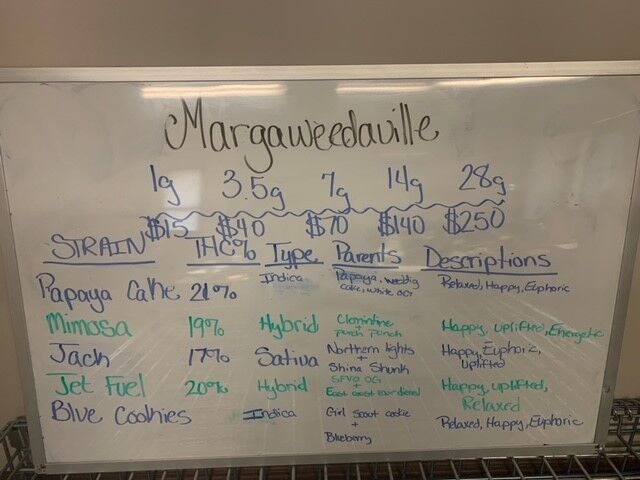 Margaweedaville
1g 3.5g 7g 14g 28g
$15 $40 $70 $140 $250
STRAIN THC% Type Parents Descriptions
Papaya Cake 21% Indica Papaya, Weddig Cake, White OG Relaxed, Happy, Euphoric
Mimosa 19% Hybrid Clemintine + purple punch Happy, Uplifted, Energetic
Jack 17% Sativa Northern lights + Shina Skunk Happy, Euphoric, Uplifted
Jet Fuel 20% Hybrid SFVO OG + East coast sour diesel Happy, Uplifted, Relaxed
Blue Cookies Indica Girl Scout cookie + Blueberry Relaxed, Happy, Euphoric